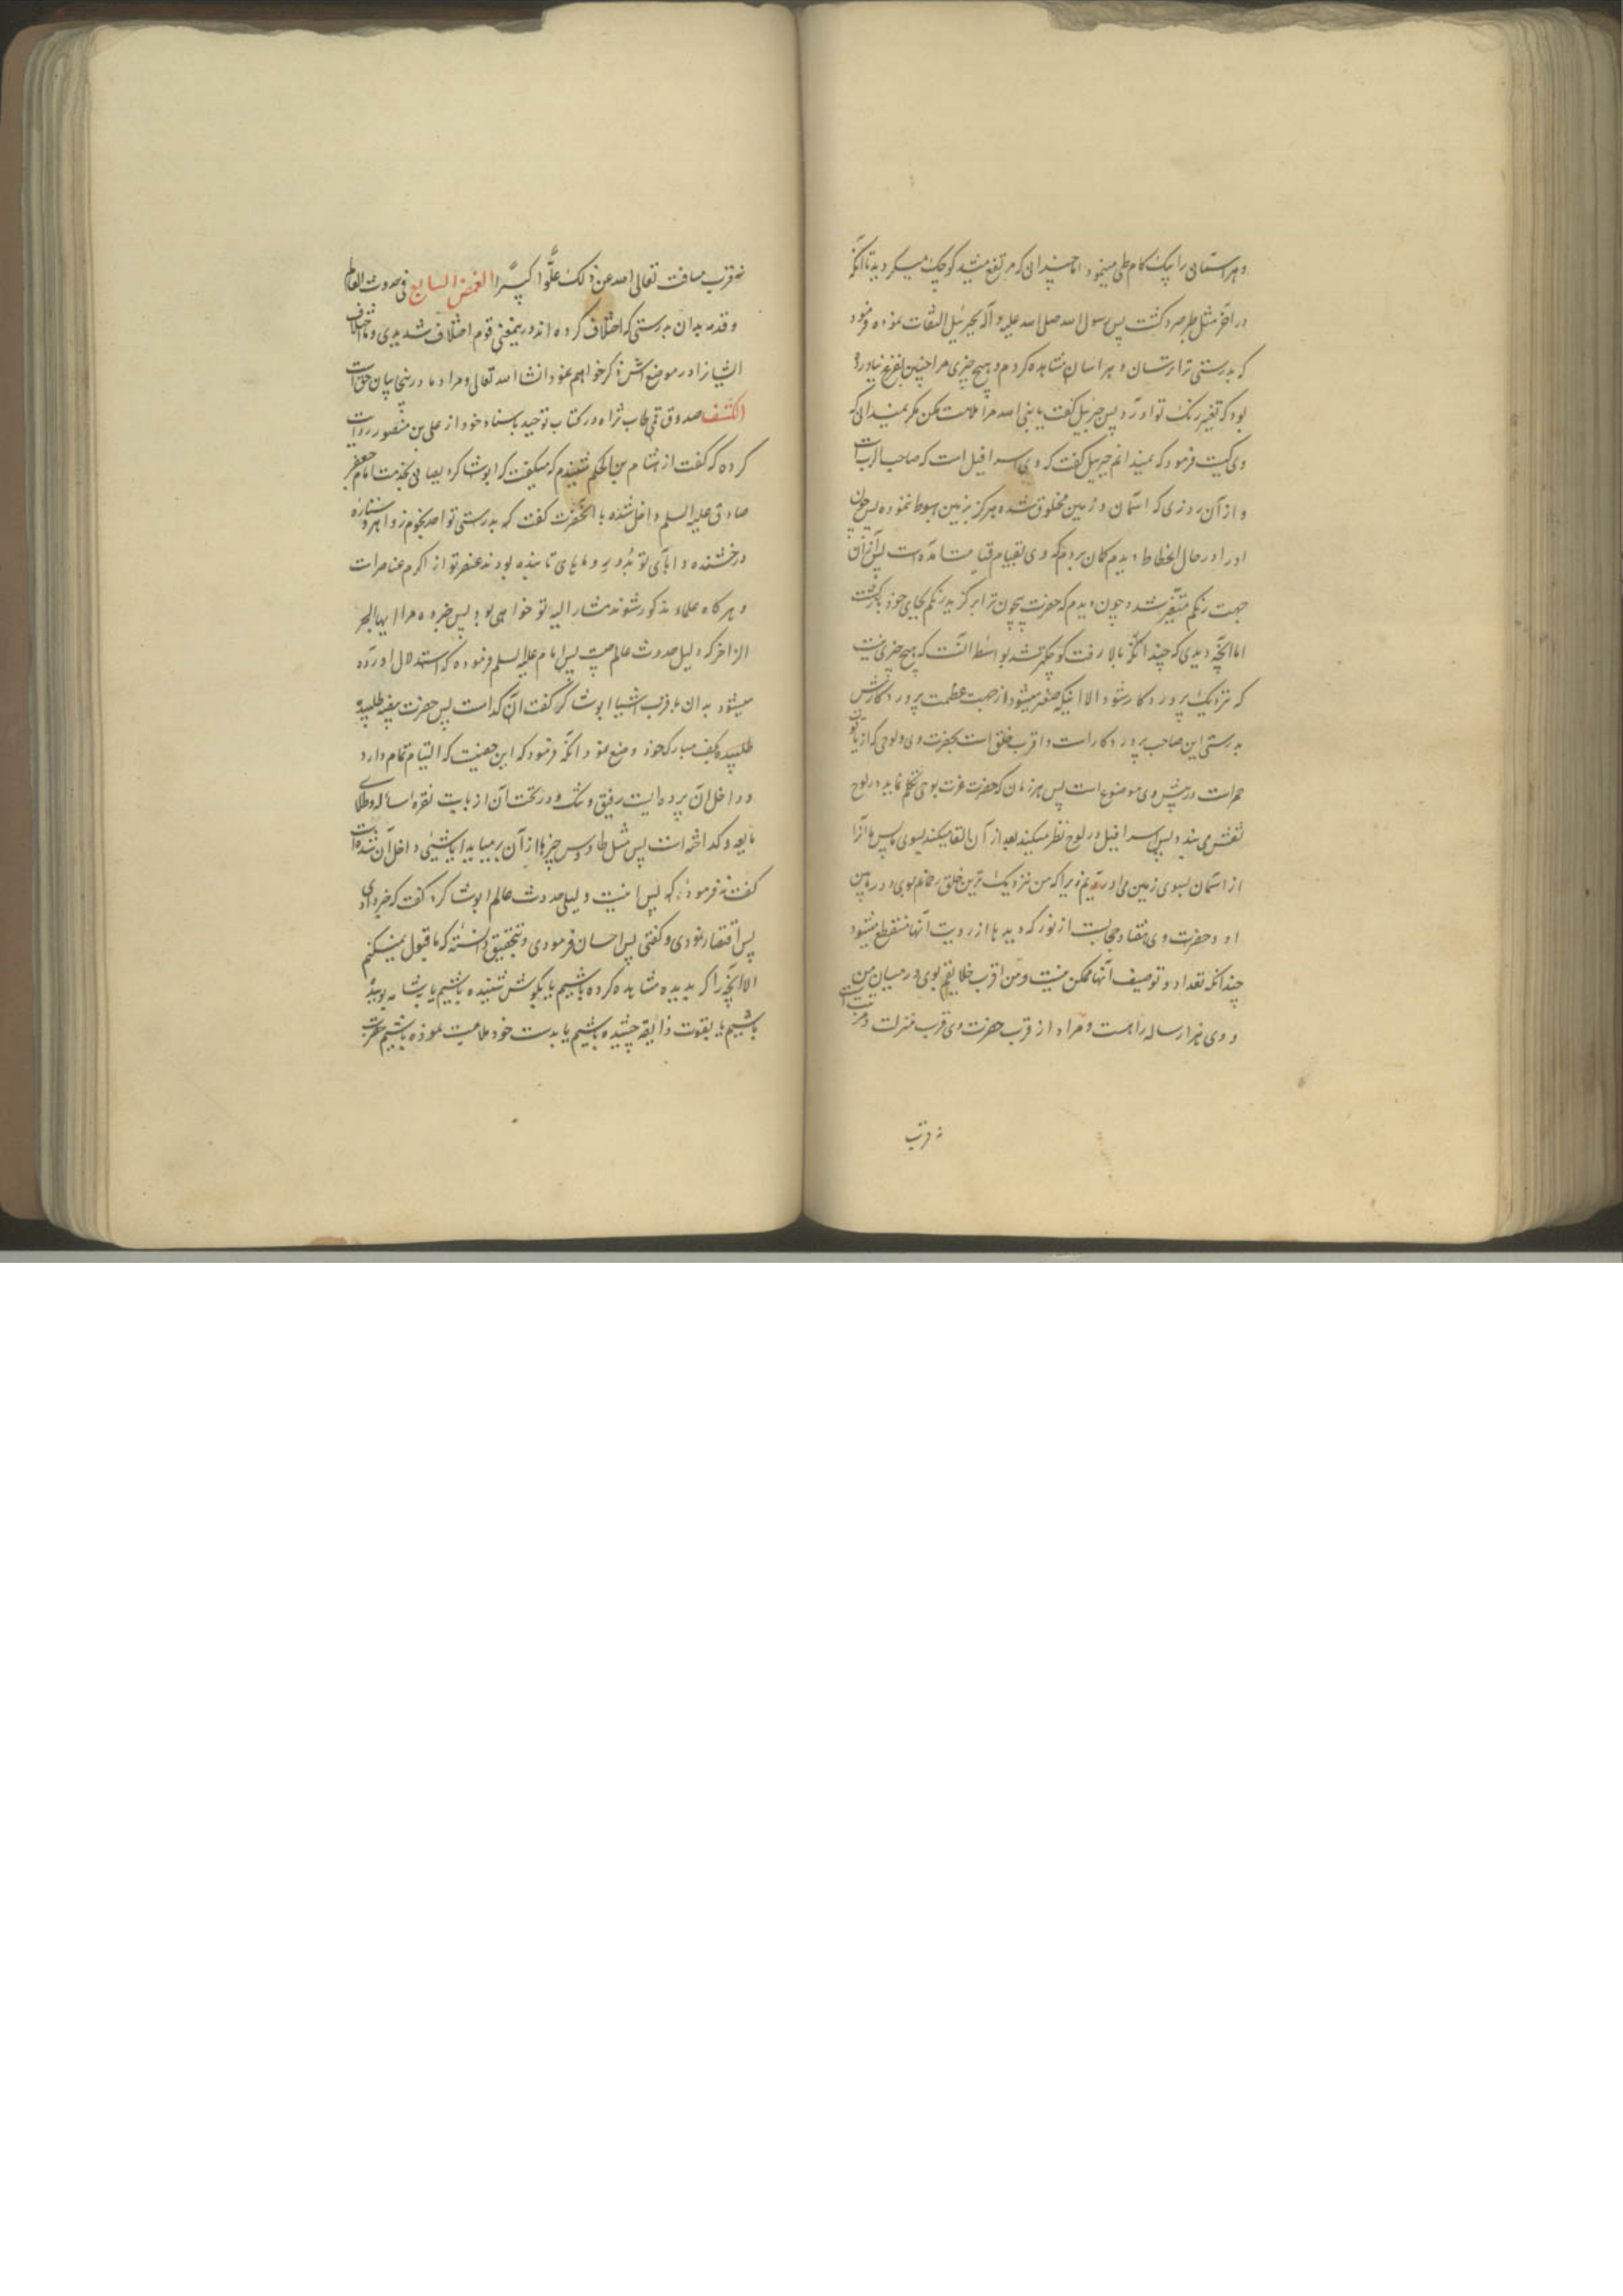 و هر آسمانی را بیک کام طی مینمود اما چندان که مرتفع میشد کوچک میکردید تا آنکه
در آخر مثل طیر صرد کشت پس رسول الله صلی الله علیه و آله بجبرئیل التفات نموده فرمود
که بدرستی ترا ترسان و هراسان مشاهده کردم و هیچ چیزی مرا چنین بفزع نیاورده
بود که تغییر رنک تو آورد پس جبرئیل کفت یا نبی الله مرا ملامت مکن مکر نمیدانی که
وی کیست فرمود که نمیدانم جبرئیل کفت که وی اسرافیل است که صاحب الرب است
و از آن روزی که آسمان و زمین مخلوق شده هرکز بزمین هبوط ننموده پس چون
او را در حال انحطاط دیدم کمان بردم که وی بقیام قیامت آمده است پس از آن
جهت رنکم متغیر شد و چون دیدم که حضرت بیچون ترا برکزید رنکم بجای خود بازکشت
اما آنچه دیدی که چندانکه بالا رفت کوچکتر شد بواسطه آنست که هیچ چیزی نیست
که نزدیک پروردکار شود الا اینکه صغیر میشود از جهت عظمت پروردکارش
بدرستی این صاحب پروردکار است و اقرب خلق است بحضرت وی و لوحی که از یاقوت
حمرا است در پیش وی موضوع است پس هر زمان که حضرت عزت بوحی تکلم نماید در لوح
نقش می بندد پس اسرافیل در لوح نظر میکند بعد از آن القا میکند بسوی ما پس ما آنرا
از آسمان بسوی زمین می آوریم زیرا که من نزدیک ترین خلق رحمانم بوی و در مابین
او و حضرت وی هفتاد حجابست از نور که دیده ها از رویت آنها منقطع میشود
چندانکه تعداد و توصیف آنها ممکن نیست و من اقرب خلایقم بوی و در میان من
و وی هزار ساله راهست و مراد از قرب حضرت وی قرب منزلت و مرتبت است
نه قرب
نه قرب مسافت تعالی الله عن ذلک علوا کبیرا الغمض السابع فی حدوث العالم
و قدمه بدان بدرستی که اختلاف کرده اند در یمعنی قوم اختلاف شدیدی و ما اختلاف
ایشانرا در موضعش ذکر خواهیم نمود انشاء الله تعالی و مراد ما در اینجا بیان حق است
الکشف صدوق قمی طاب ثراه در کتاب توحید باسناد خود از علی بن منصور روایت
کرده که کفت از هشام بن الحکم شنیدم که میکفت که ابو شاکر دیصانی بخدمت امام جعفر
صادق علیه السلم داخل شده بآنحضرت کفت که بدرستی تو احد نجوم زواهر و ستاره
درخشنده و آبای تو بدور و ماهای تابنده بودند عنصر تو از اکرم عناصر است
و هرکاه علماء مذکور شوند مشار الیه تو خواهی بود پس خبر ده مرا ایها البحر
الزاخر که دلیل حدوث عالم چیست پس امام علیه السلم فرموده که استدلال آورده
میشود بدان باقرب اشیا ابو شاکر کفت آن کدامست پس حضرت بیضه طلبیده
طلبیده بکف مبارک خود وضع نمود آنکه فرمود که این حصنیست که التیام تمام دارد
و داخل آن پرده ایست رقیق و تنک و در تحت آن از بابت نقره سائله و طلای
مایعه و کداخته است پس مثل طاوس چیزها از آن برمیاید ایا شیئی داخل آن شده است
کفت نه فرمود که پس اینست دلیل حدوث عالم ابو شاکر کفت که خبر دادی
پس اقتصار نمودی و کفتی پس احسان فرمودی و بتحقیق دانسته که ما قبول نمیکنیم
الا آنچه را که بدیده مشاهده کرده باشیم یا بکوش شنیده باشیم یا بشامه بوییده
باشیم یا بقوت ذایقه چشیده باشیم یا بدست خود ملامست نموده باشیم حضرت